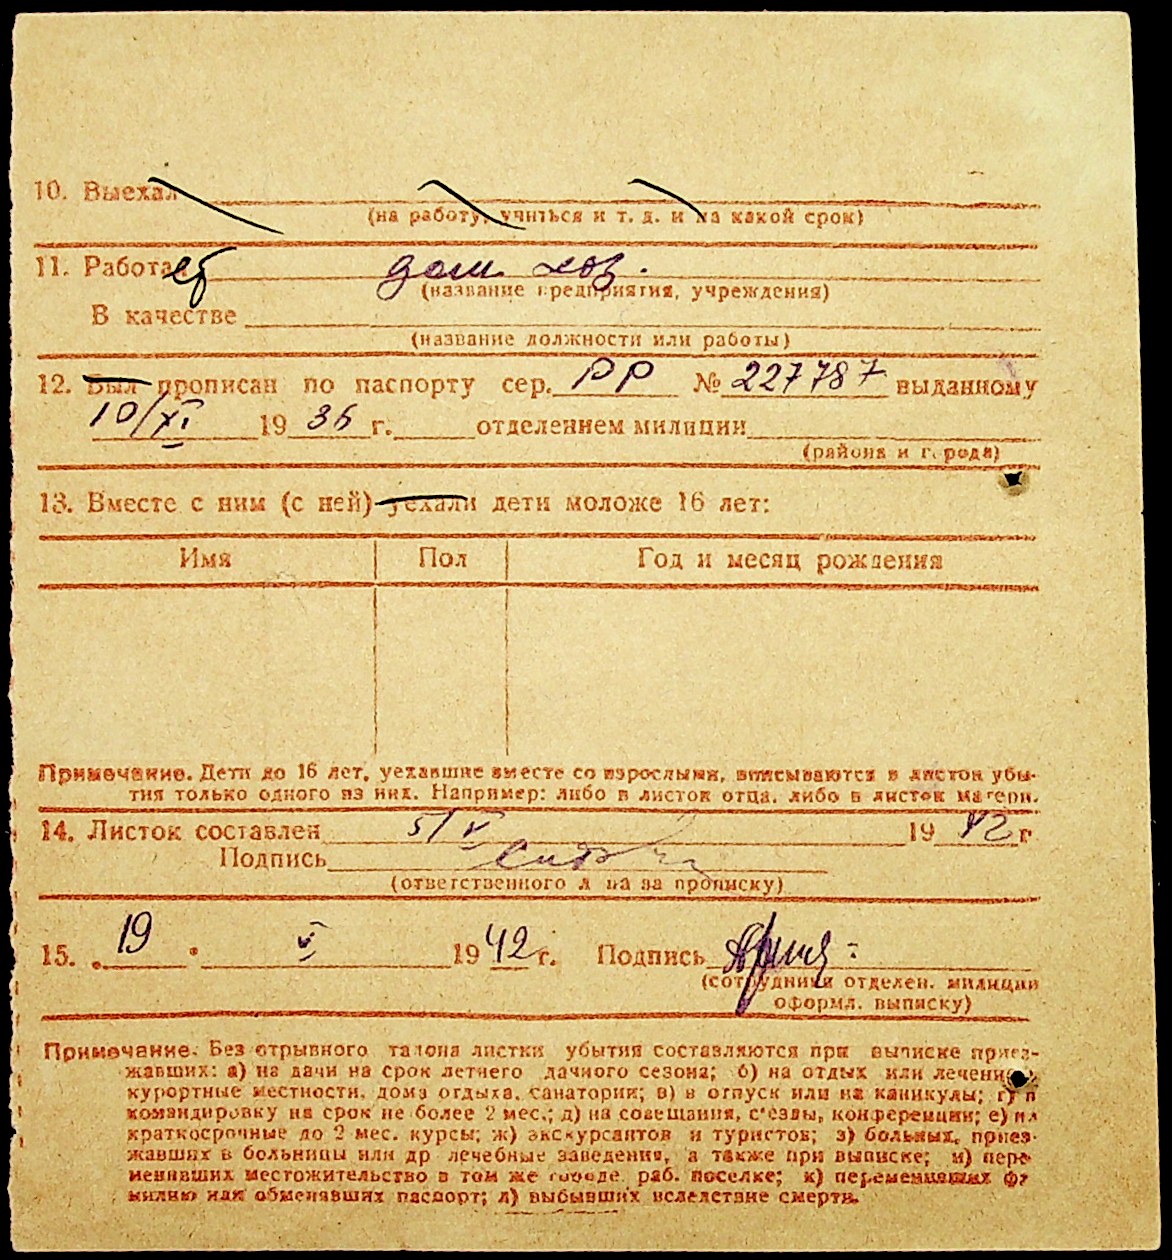 10. Выехал
(на работу, учиться и т. д. и на какой срок)
11. Работает дом. хоз.
(название предприятия, учреждения)
В качестве
(название должности или работы)
12. Был прописан по паспорту сер. РР № 227787 выданному
10/XI 1936 г. отделением милиции
(района и города)
13. Вместе с ним (с ней) уехали дети моложе 16 лет:
Имя Пол Год и месяц рождения
Примечание. Дети до 16 лет, уехавшие вместе со взрослыми, вписываются в листок убы-
тия только одного из них. Например: либо в листок отца, либо в листок матери.
14. Листок составлен 5/V 1942 г
Подпись
(ответственного лица за прописку)
15. „19" VI 1942 г. Подпись
(сотрудники отделен. милиции
оформл. выписку)
Примечание. Без отрывного талона листки убытия составляются при выписке приез-
жавших: а) на дачи на срок летнего дачного сезона; б) на отдых или лечение
курортные местности, дома отдыха, санатории; в) в отпуск или на каникулы; г) в
командировку на срок не более 2 мес.; д) на совещания, с'езды, конференции; е) на
краткосрочные до 2 мес. курсы; ж) экскурсантов и туристов; з) больных, приез-
жавших в больницы или др лечебные заведения, а также при выписке; и) пере-
менивших местожительство в том же городе, раб. поселке; к) переменивших фа-
милию или обменавших паспорт; л) выбывших вследствие смерти.